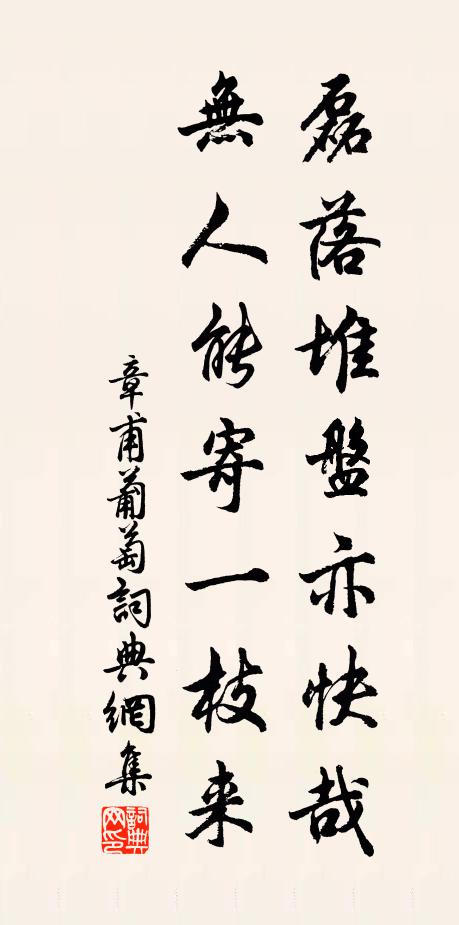 磊落堆盤亦快哉
無人能寄一枝来
章甫葡萄詞典網集
詞典
网印